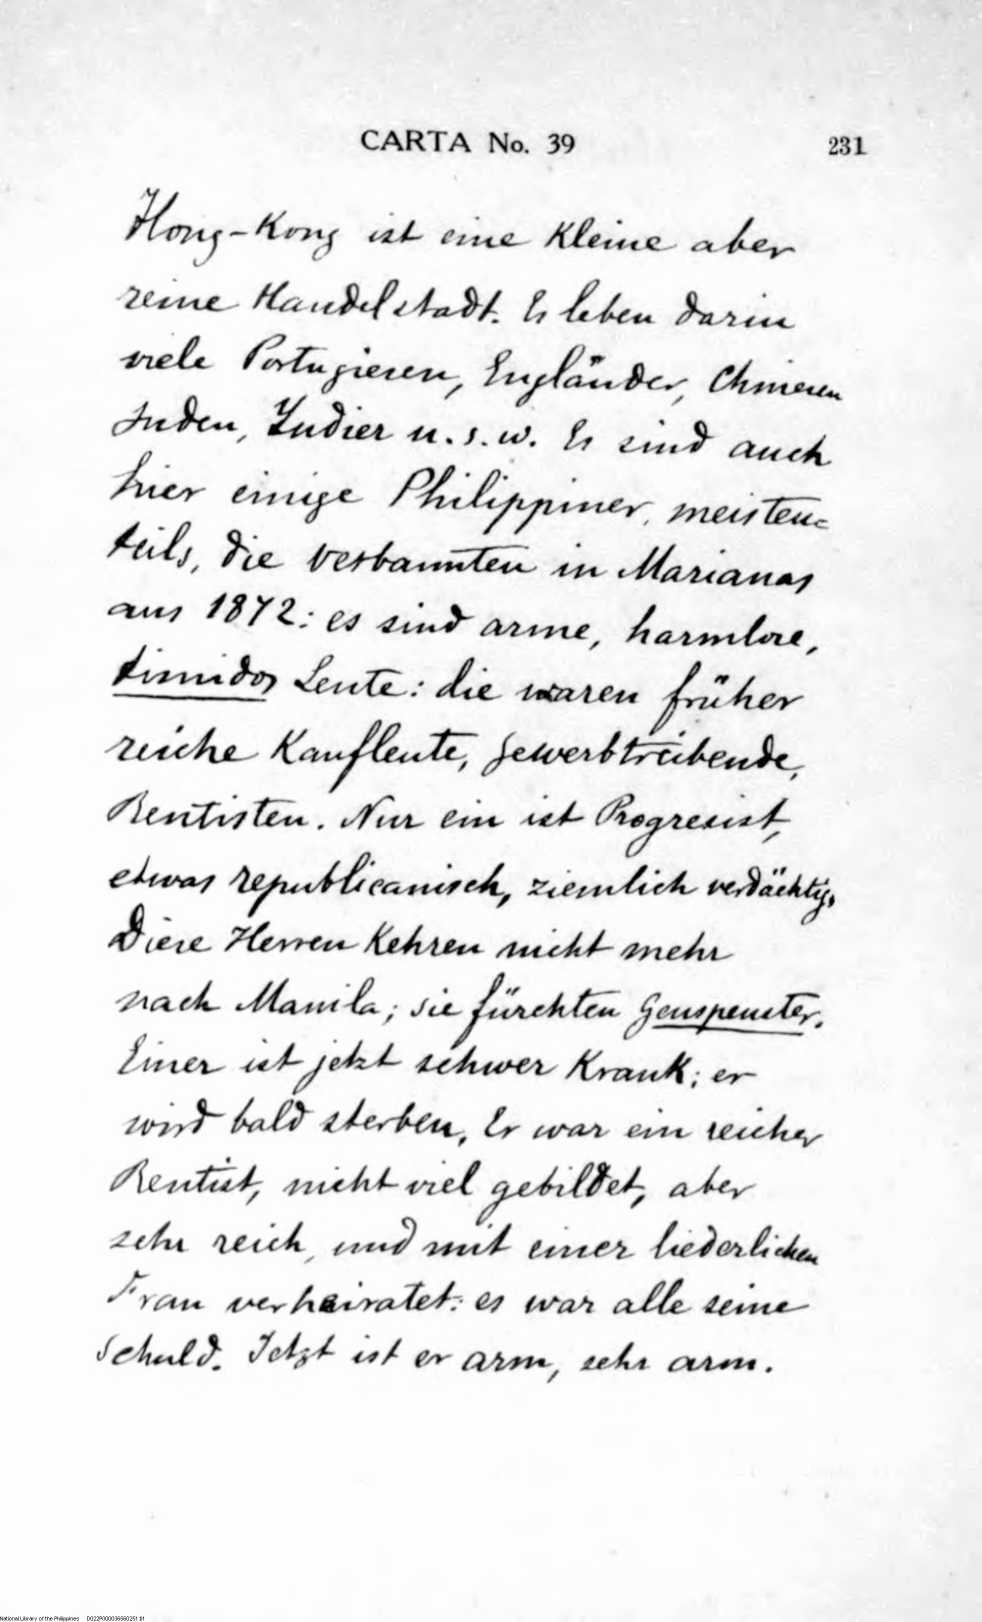 CARTA No. 39 231
Hong-Kong ist eine kleine aber
reine Handelstadt. Es leben darin
viele Portugiesen, Engländer, Chinesen
Juden, Indier u.s.w. Es sind auch
hier einige Philippiner, meisten=
teils, die verbannten in Marianas
aus 1872: es sind arme, harmlose,
timidos Leute: die waren früher
reiche Kaufleute, Gewerbtreibende,
Rentisten. Nur ein ist Progresist,
etwas republicanisch, ziemlich verdächtig.
Diese Herren kehren nicht mehr
nach Manila; sie fürchten Genspenster.
Einer ist jetzt schwer krank; er
wird bald sterben, Er war ein reicher
Rentist, nicht viel gebildet, aber
sehr reich, und mit einer liederlichen
Frau verheiratet: es war alle seine
Schuld. Jetzt ist er arm, sehr arm.
National Library of the Philippines